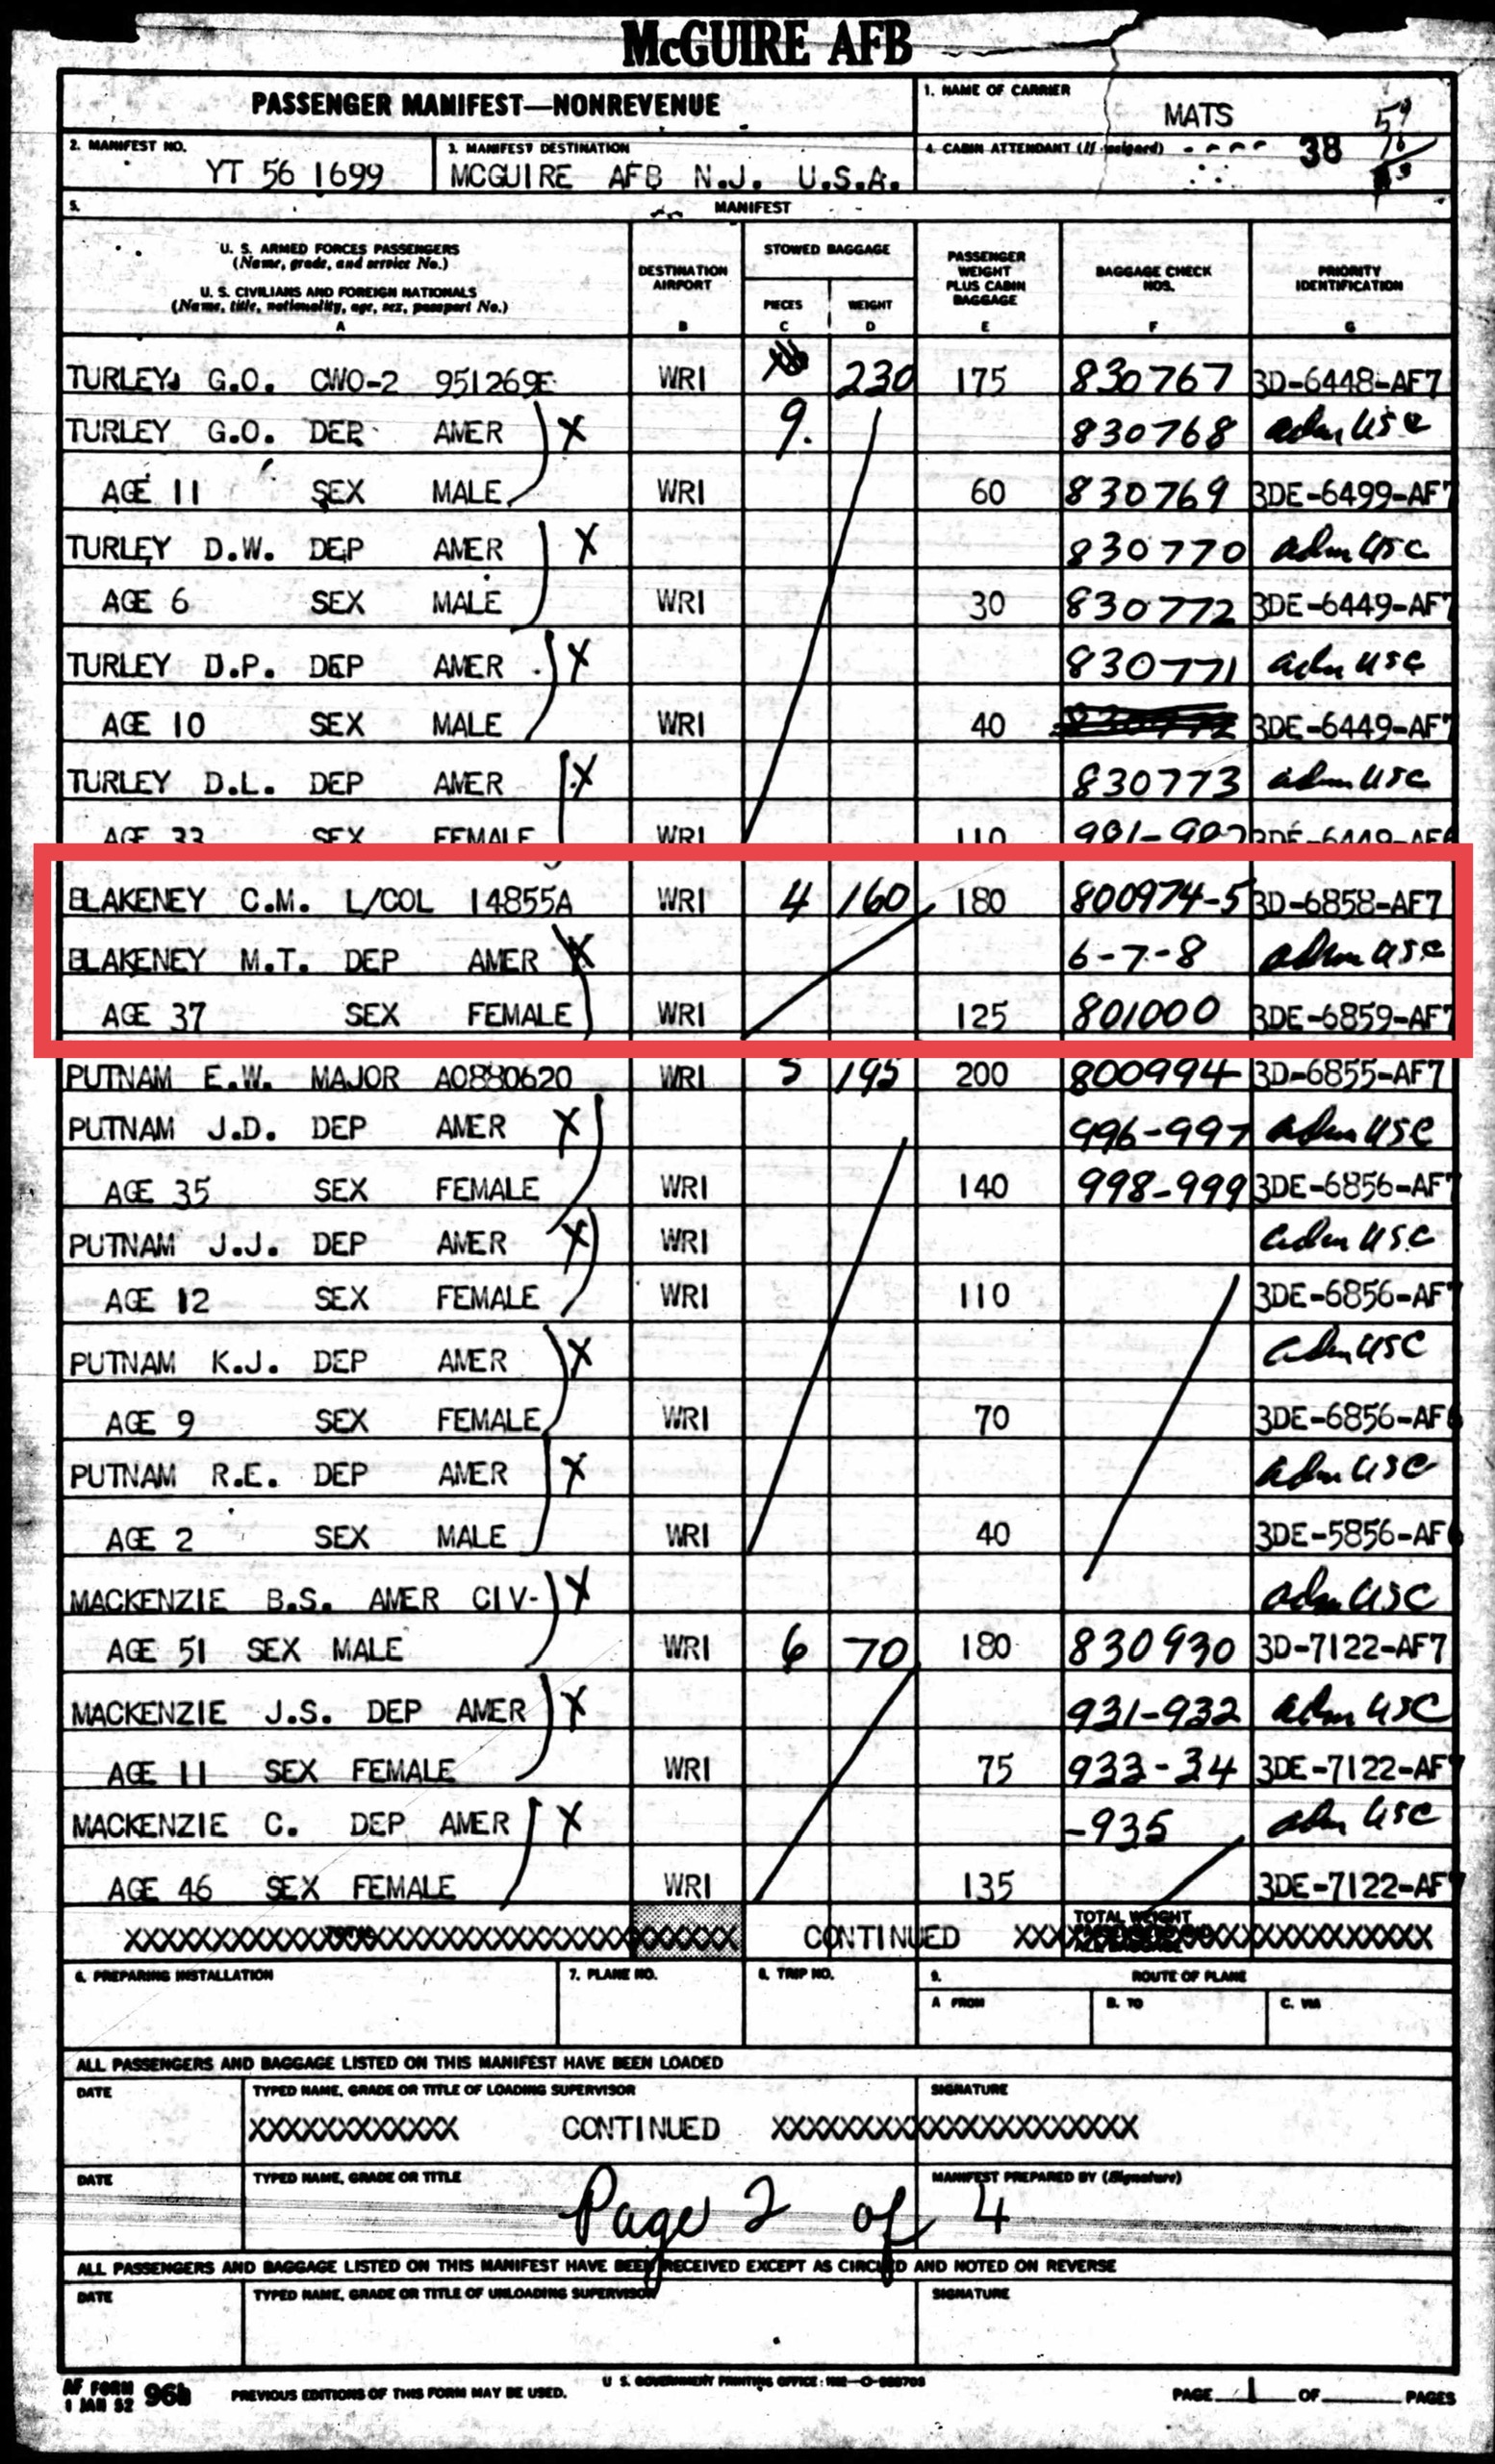 McGUIRE AFB
PASSENGER MANIFEST—NONREVENUE
1. NAME OF CARRIER
MATS
2. MANIFEST NO.
YT 56 1699
3. MANIFEST DESTINATION
MCGUIRE AFB N.J. U.S.A.
4. CABIN ATTENDANT (If assigned)
38
5. MANIFEST
U. S. ARMED FORCES PASSENGERS
(Name, grade, and service No.)
U. S. CIVILIANS AND FOREIGN NATIONALS
(Name, title, nationality, age, sex, passport No.)
A
DESTINATION AIRPORT
B
STOWED BAGGAGE
PIECES
C
WEIGHT
D
PASSENGER WEIGHT PLUS CABIN BAGGAGE
E
BAGGAGE CHECK NOS.
F
PRIORITY IDENTIFICATION
G
TURLEY G.O. CWO-2 951269E WRI 230 175 830767 3D-6448-AF7
TURLEY G.O. DEP AMER X 9. 830768 adm USC
AGE 11 SEX MALE WRI 60 830769 3DE-6499-AF7
TURLEY D.W. DEP AMER X 830770 adm USC
AGE 6 SEX MALE WRI 30 830772 3DE-6449-AF7
TURLEY D.P. DEP AMER X 830771 adm USC
AGE 10 SEX MALE WRI 40 3DE-6449-AF7
TURLEY D.L. DEP AMER X 830773 adm USC
AGE 33 SEX FEMALE WRI 110 981-982 3DE-6449-AF6
BLAKENEY C.M. L/COL 14855A WRI 4 160 180 800974-5 3D-6858-AF7
BLAKENEY M.T. DEP AMER X 6-7-8 adm USC
AGE 37 SEX FEMALE WRI 125 801000 3DE-6859-AF7
PUTNAM E.W. MAJOR AO880620 WRI 5 195 200 800994 3D-6855-AF7
PUTNAM J.D. DEP AMER X 996-997 adm USC
AGE 35 SEX FEMALE WRI 140 998-999 3DE-6856-AF7
PUTNAM J.J. DEP AMER X WRI adm USC
AGE 12 SEX FEMALE WRI 110 3DE-6856-AF7
PUTNAM K.J. DEP AMER X adm USC
AGE 9 SEX FEMALE WRI 70 3DE-6856-AF6
PUTNAM R.E. DEP AMER X adm USC
AGE 2 SEX MALE WRI 40 3DE-5856-AF6
MACKENZIE B.S. AMER CIV- X adm USC
AGE 51 SEX MALE WRI 6 70 180 830930 3D-7122-AF7
MACKENZIE J.S. DEP AMER X 931-932 adm USC
AGE 11 SEX FEMALE WRI 75 933-34 3DE-7122-AF7
MACKENZIE C. DEP AMER X -935 adm USC
AGE 46 SEX FEMALE WRI 135 3DE-7122-AF7
CONTINUED
TOTAL WEIGHT
6. PREPARING INSTALLATION
7. PLANE NO.
8. TRIP NO.
9. ROUTE OF PLANE
A FROM
B. TO
C. VIA
ALL PASSENGERS AND BAGGAGE LISTED ON THIS MANIFEST HAVE BEEN LOADED
DATE
TYPED NAME, GRADE OR TITLE OF LOADING SUPERVISOR
SIGNATURE
XXXXXXXXXXXX CONTINUED XXXXXXXXXXXXXXXXXXXXX
DATE
TYPED NAME, GRADE OR TITLE
MANIFEST PREPARED BY (Signature)
Page 2 of 4
ALL PASSENGERS AND BAGGAGE LISTED ON THIS MANIFEST HAVE BEEN RECEIVED EXCEPT AS CIRCLED AND NOTED ON REVERSE
DATE
TYPED NAME, GRADE OR TITLE OF UNLOADING SUPERVISOR
SIGNATURE
AF FORM 1 JAN 52 96b
PREVIOUS EDITIONS OF THIS FORM MAY BE USED.
U. S. GOVERNMENT PRINTING OFFICE
PAGE 1 OF PAGES